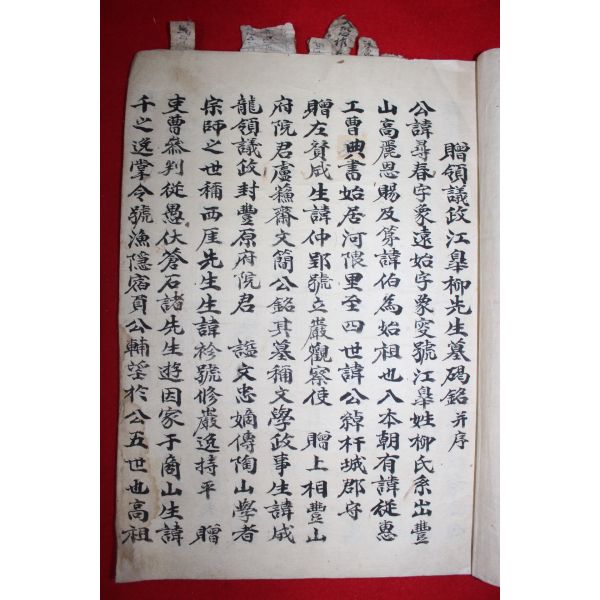 贈領議政江皐柳先生墓碣銘并序
公諱尋春字象遠始字象叟號江皐姓柳氏系出豐
山高麗恩賜及第諱伯為始祖也入本朝有諱從惠
工曹典書始居河隈里至四世諱公綽杆城郡守
贈左贊成生諱仲郢號立巖觀察使 贈上相豐山
府院君盧蘓齋文簡公銘其墓稱文學政事生諱成
龍領議政封豐原府院君 謚文忠嫡傳陶山學者
宗師之世稱西厓先生生諱袗號修巖逸持平 贈
吏曹叅判從愚伏蒼石諸先生遊因家于商山生諱
千之逸掌令號漁隱宿負公輔望於公五世也高祖